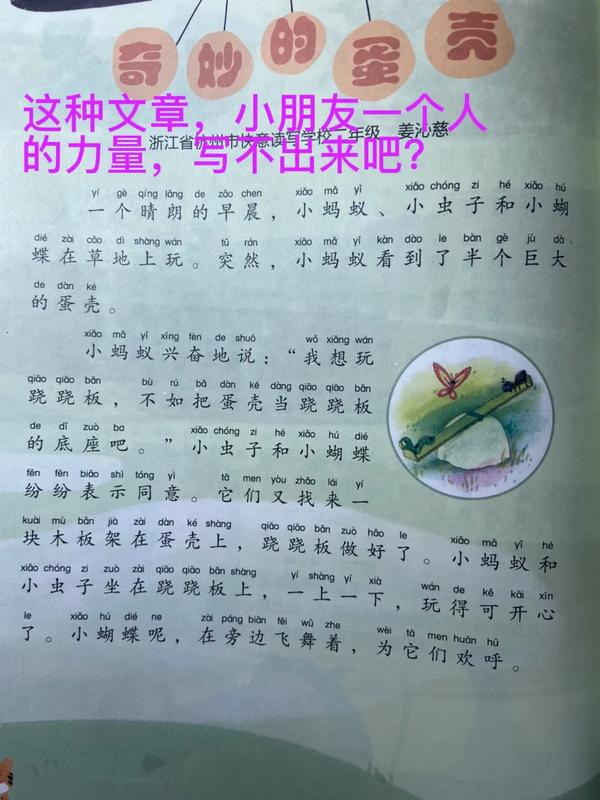 奇妙的蛋壳
这种文章，小朋友一个人
的力量，写不出来吧？
浙江省杭州市快意读写学校二年级 姜沁慈
yí gè qíng lǎng de zǎo chen xiǎo mǎ yǐ xiǎo chóng zi hé xiǎo hú
一个晴朗的早晨，小蚂蚁、小虫子和小蝴
dié zài cǎo dì shàng wán tū rán xiǎo mǎ yǐ kàn dào le bàn gè jù dà
蝶在草地上玩。突然，小蚂蚁看到了半个巨大
de dàn ké
的蛋壳。
xiǎo mǎ yǐ xīng fèn de shuō wǒ xiǎng wán
小蚂蚁兴奋地说：“我想玩
qiāo qiāo bǎn bù rú bǎ dàn ké dàng qiāo qiāo bǎn
跷跷板，不如把蛋壳当跷跷板
de dǐ zuò ba xiǎo chóng zi hé xiǎo hú dié
的底座吧。”小虫子和小蝴蝶
fēn fēn biǎo shì tóng yì tā men yòu zhǎo lái yí
纷纷表示同意。它们又找来一
kuài mù bǎn jià zài dàn ké shàng qiāo qiāo bǎn zuò hǎo le xiǎo mǎ yǐ hé
块木板架在蛋壳上，跷跷板做好了。小蚂蚁和
xiǎo chóng zi zuò zài qiāo qiāo bǎn shàng yí shàng yí xià wán de kě kāi xīn
小虫子坐在跷跷板上，一上一下，玩得可开心
le xiǎo hú dié ne zài páng biān fēi wǔ zhe wèi tā men huān hū
了。小蝴蝶呢，在旁边飞舞着，为它们欢呼。